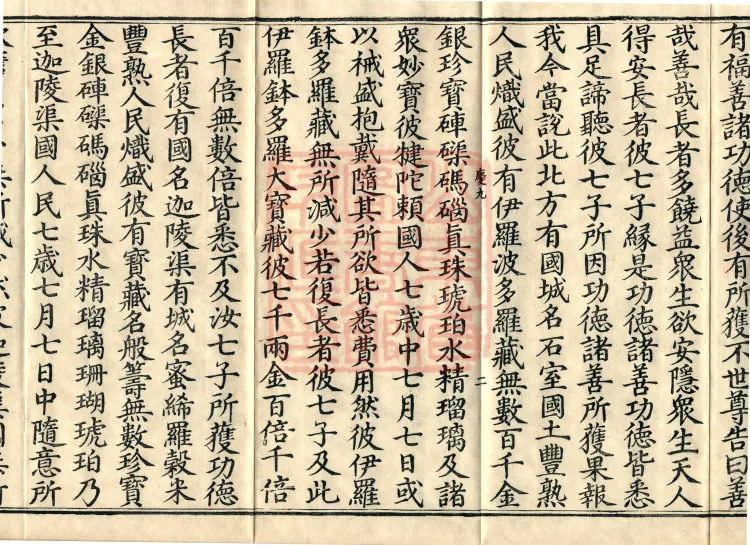 有福善諸功德使後有所獲不世尊告曰善
哉善哉長者多饒益衆生欲安隱衆生天人
得安長者彼七子緣是功德諸善功德皆悉
具足諦聽彼七子所因功德諸善所獲果報
我今當說此北方有國城名石室國土豐熟
人民熾盛彼有伊羅波多羅藏無數百千金
慶九
二
銀珍寶硨磲碼碯眞珠琥珀水精瑠璃及諸
衆妙寶彼犍陀賴國人七歲中七月七日或
以裓盛抱戴隨其所欲皆悉費用然彼伊羅
鉢多羅藏無所減少若復長者彼七子及此
伊羅鉢多羅大寶藏彼七千兩金百倍千倍
百千倍無數倍皆悉不及汝七子所獲功德
長者復有國名迦陵渠有城名蜜絺羅穀米
豐熟人民熾盛彼有寶藏名般籌無數珍寶
金銀硨磲碼碯眞珠水精瑠璃珊瑚琥珀乃
至迦陵渠國人民七歲七月七日中隨意所